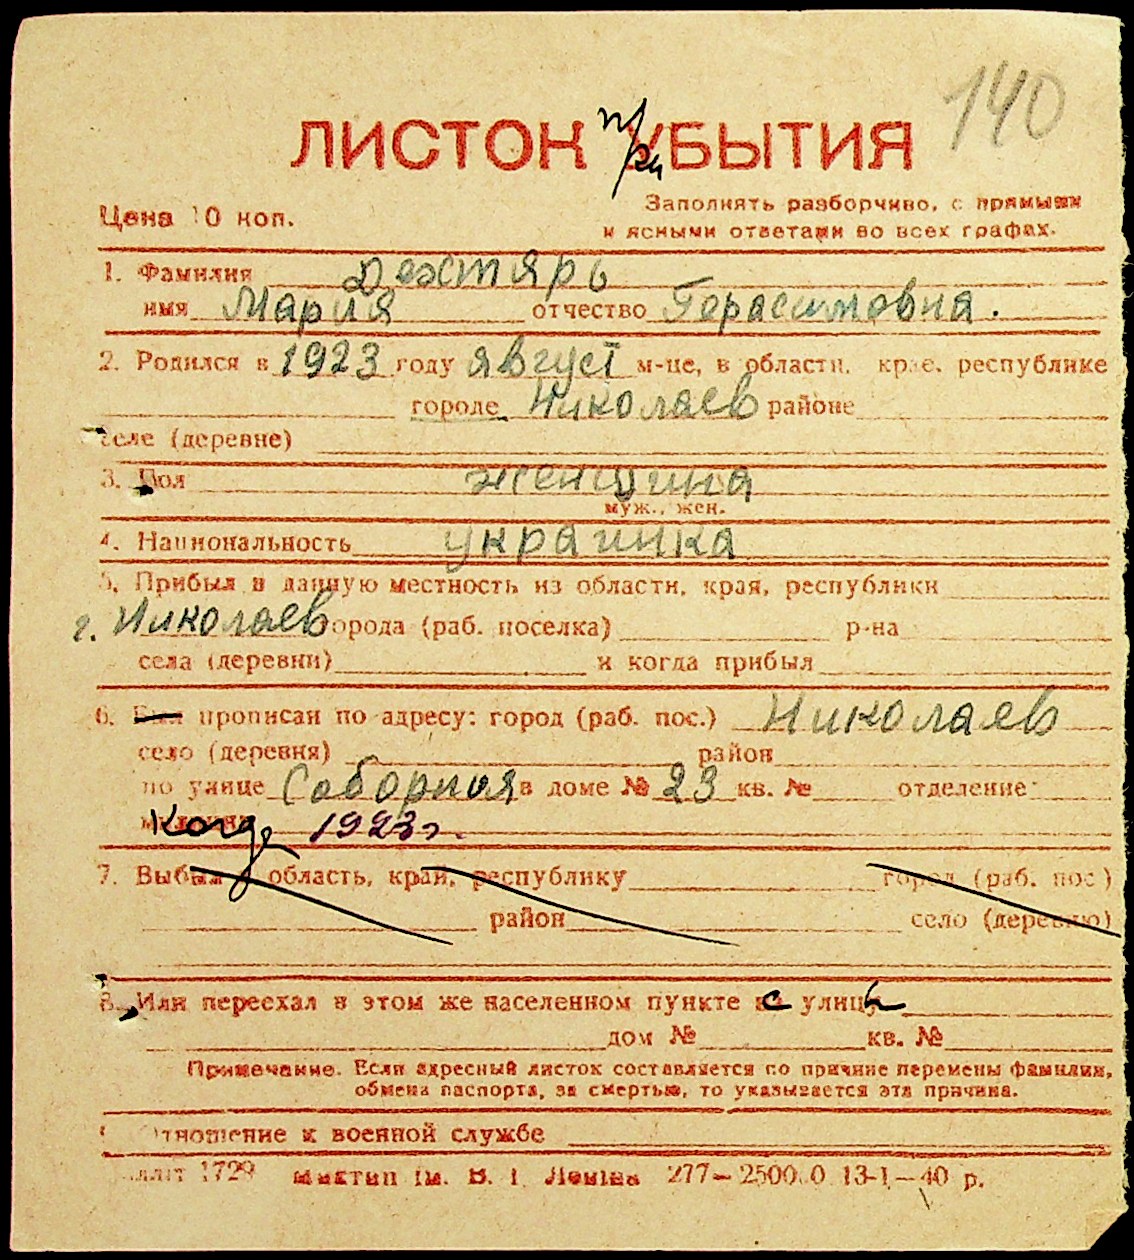 140
ЛИСТОК УБЫТИЯ
при
Цена 10 коп.
Заполнять разборчиво, с прямыми
и ясными ответами во всех графах.
1. Фамилия Дехтярь
имя Мария отчество Герасимовна.
2. Родился в 1923 году август м-це, в области, крае, республике
городе Николаев районе
селе (деревне)
3. Пол женщина
муж., жен.
4. Национальность украинка
5. Прибыл в данную местность из области, края, республики
г. Николаев города (раб. поселка) р-на
села (деревни) и когда прибыл
6. Был прописан по адресу: город (раб. пос.) Николаев
село (деревня) район
по улице Соборная в доме № 23 кв. № отделение
милиции Когда 1923 г.
7. Выбыл область, край, республику город (раб. пос.)
район село (деревню)
8. Или переехал в этом же населенном пункте с улицы
дом № кв. №
Примечание. Если адресный листок составляется по причине перемены фамилии,
обмена паспорта, за смертью, то указывается эта причина.
Отношение к военной службе
1729 Миктип ім. В. І. Леніна 277—25000 13-1—40 р.